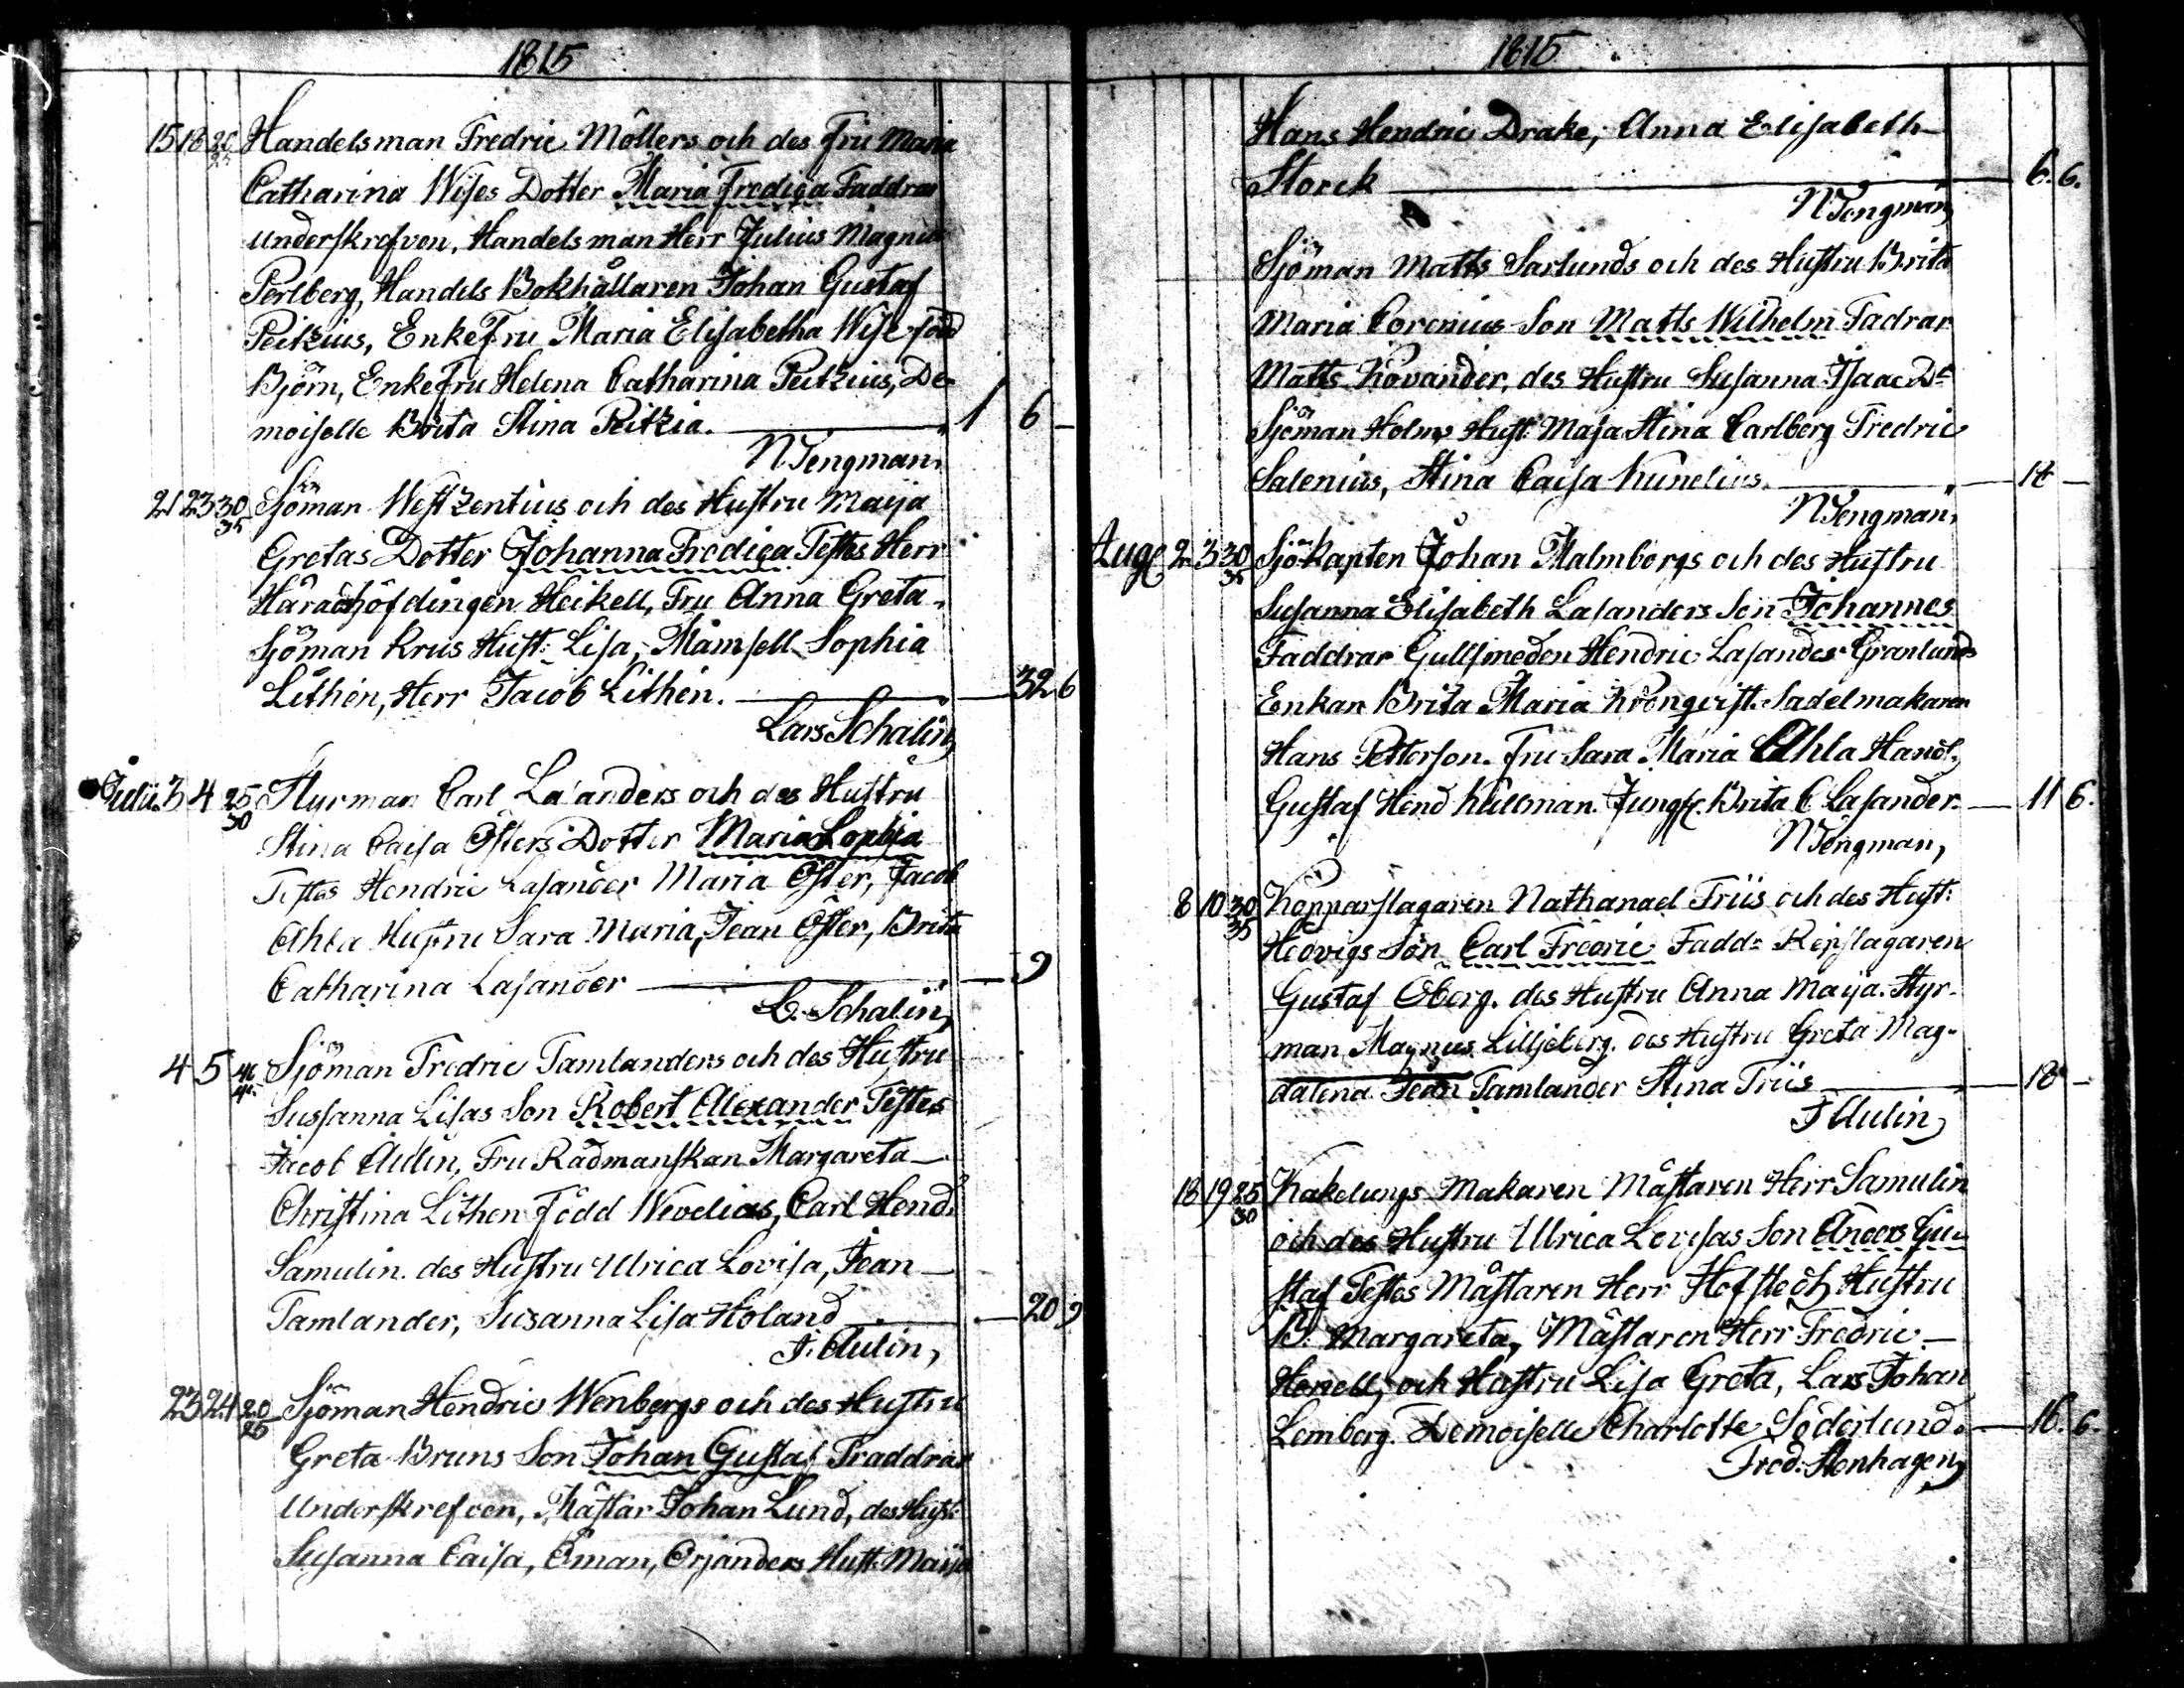 1815
15 18 20/25 Handelsman Fredric Möllers och des Fru Maria
Catharina Wises Dotter Maria Fredica Faddrar
underskrefven, Handelsman Herr Julius Magnus
Perlberg, Handels Bokhållaren Johan Gustaf
Peitzius, Enke Fru Maria Elisabetha Wise född
Björn, Enke Fru Helena Catharina Peitzius, De-
moiselle Brita Stina Peitzia. 1 6 –
N Tengman,
21 23 30/35 Sjöman Westzentius och des Hustru Maija
Gretas Dotter Johanna Fredica Testes Herr
Häradshöfdingen Heikell, Fru Anna Greta
Sjöman Krus Hust: Lisa, Mamsell Sophia
Lithén, Herr Jacob Lithén. 32 6
Lars Schalin,
Julii 3 4 25/30 Styrman Carl Lasanders och des Hustru
Stina Caisa Östers Dotter Maria Sophia
Testes Hendric Lasander Maria Öster, Jacob
Ahla Hustru Sara Maria, Jean Öster, Brita
Catharina Lasander 9
L. Schalin,
4 5 Sjöman Fredric Tamlanders och des Hustru
Sussanna Lisas Son Robert Alexander Testes
Jacob Aulin, Fru Rådmanskan Margareta
Christina Lithen född Wevelius, Carl Hend.
Samulin. des Hustru Ulrica Lovisa, Jean
Tamlander, Susanna Lisa Holand 20 9
J. Aulin,
23 24 20/25 Sjöman Hendric Wenbergs och des Hustru
Greta Bruns Son Johan Gustaf Fraddrar
Underskrefven, Mästar Johan Lund, des Hust:
Susanna Caisa, Öman, Orjanders Hust. Maija
1815
Hans Hendric Drake, Anna Elisabeth
Storck 6. 6.
N Tengman,
Sjöman Matts Sarlunds och des Hustru Brita
Maria Corenius Son Matts Wilhelm Fadrar
Matts Kovander, des Hustru Susanna Isaac Dr
Sjöman Holms Hust: Maja Stina Carlberg Fredric
Salenius, Stina Caisa Kunelius. –
N Tengman,
Aug 2 3 30/35 Sjökapten Johan Malmbergs och des Hustru
Susanna Elisabeth Lasanders Son Johannes
Faddrar Gullsmeden Hendric Lasander Granlunds
Enkan Brita Maria Kronqvist. Sadelmakaren
Hans Petterson. Fru Sara Maria Ahla Handl.
Gustaf Hend Kullman. Jungf. Brita C Lasander. 11 6.
N Tengman,
8 10 30/35 Kopparslagaren Nathanael Friis och des Hust:
Hedvigs Son Carl Fredric Fadd: Repslagaren
Gustaf Öberg. des Hustru Anna Maija. Styr-
man Magnus Liljeberg. des Hustru Greta Mag-
dalena Jean Tamlander Stina Friis 18 –
J Aulin,
18 19 25/30 Kakelungs Makaren Mästaren Herr Samulin
och des Hustru Ulrica Lovisas Son Anders Gu-
staf Testes Mästaren Herr Hofstedt, Hustru
B. Margareta, Mästaren Herr Fredric
Henell, och Hustru Lisa Greta, Lars Johan
Lemberg. Demoiselle Charlotte Söderlund. 16. 6.
Fred. Stenhagen,